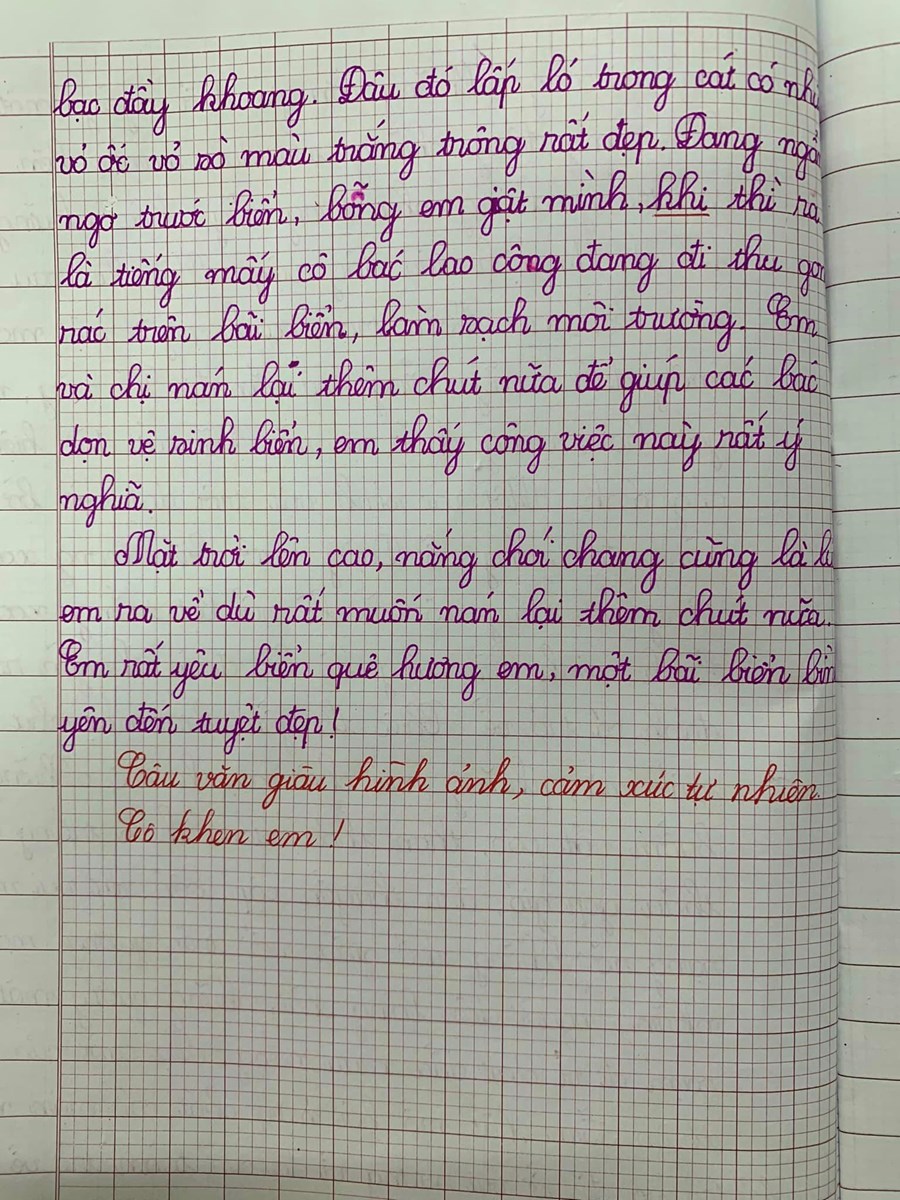 bạc đầy khoang. Đâu đó lấp ló trong cát có nh
vỏ ốc vỏ sò màu trắng trông rất đẹp. Đang ngẩ
ngơ trước biển, bỗng em giật mình, khi thì ra
là tiếng mấy cô bác lao công đang đi thu gom
rác trên bãi biển, làm sạch môi trường. Em
và chị nán lại thêm chút nữa để giúp các bác
dọn vệ sinh biển, em thấy công việc này rất ý
nghĩa.
Mặt trời lên cao, nắng chói chang cũng là l
em ra về dù rất muốn nán lại thêm chút nữa.
Em rất yêu biển quê hương em, một bãi biển bìn
yên đến tuyệt đẹp!
Câu văn giàu hình ảnh, cảm xúc tự nhiên.
Cô khen em!